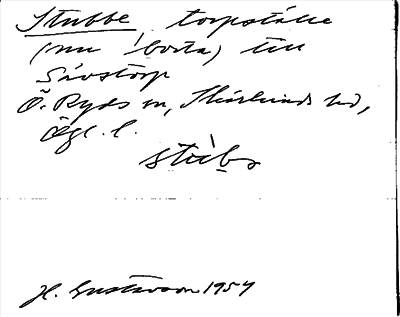 Stubbe, torpställe
(nu borta) till
Sävstorp
Ö. Ryds sn, Skärkinds hd,
Ögl. l.
stùb₀
H. Gustavson 1954